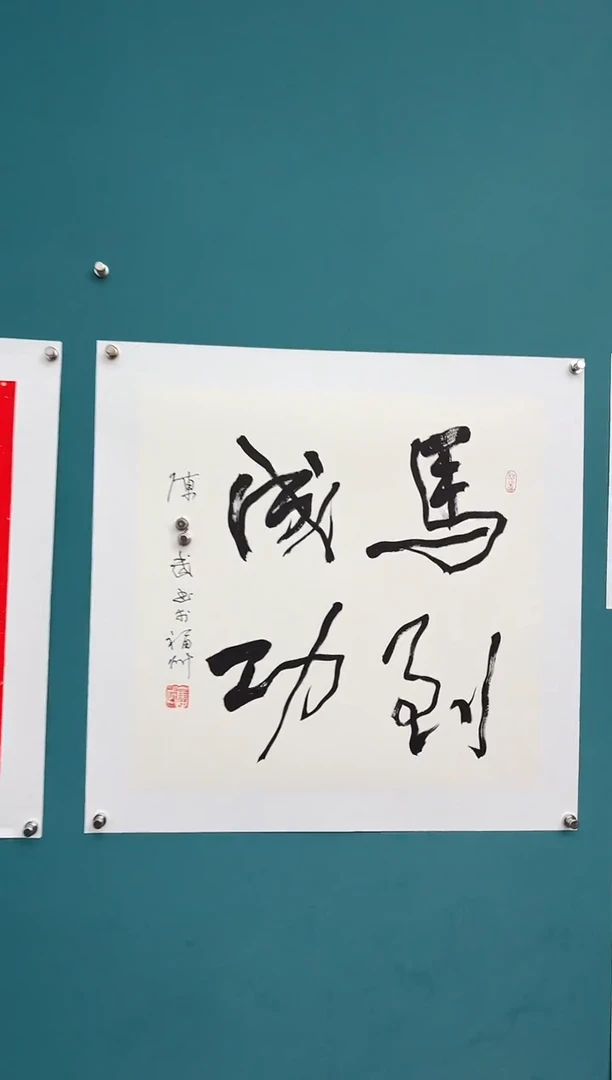 馬到
成功
陳
武書於福州